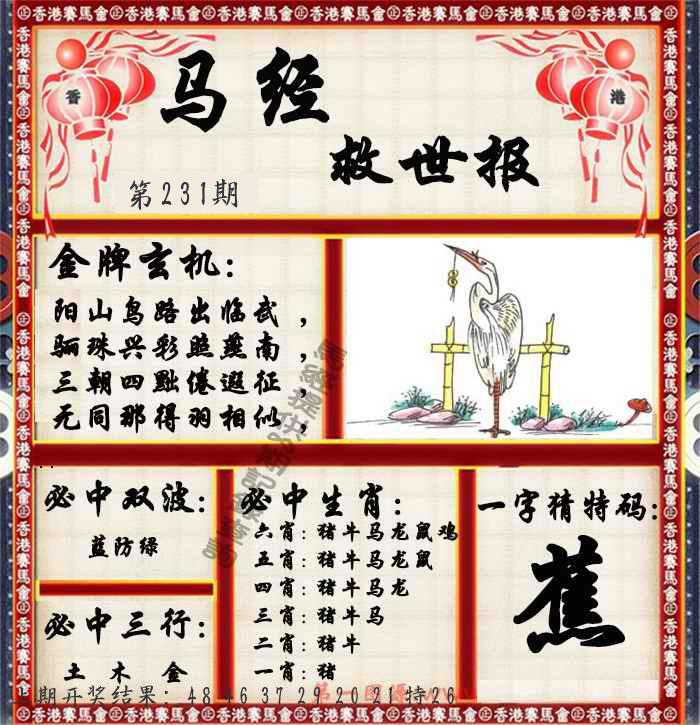 香港賽馬會
香 港
马经
救世报
第231期
金牌玄机：
阳山鸟路出临武，
骊珠兴彩照燕南，
三朝四黜倦遐征，
无同那得羽相似，
必中双波：
蓝防绿
必中三行：
土 木 金
必中生肖：
六肖：猪牛马龙鼠鸡
五肖：猪牛马龙鼠
四肖：猪牛马龙
三肖：猪牛马
二肖：猪牛
一肖：猪
一字猜特码：
蕉
期开奖结果：48 46 37 29 20 21特26